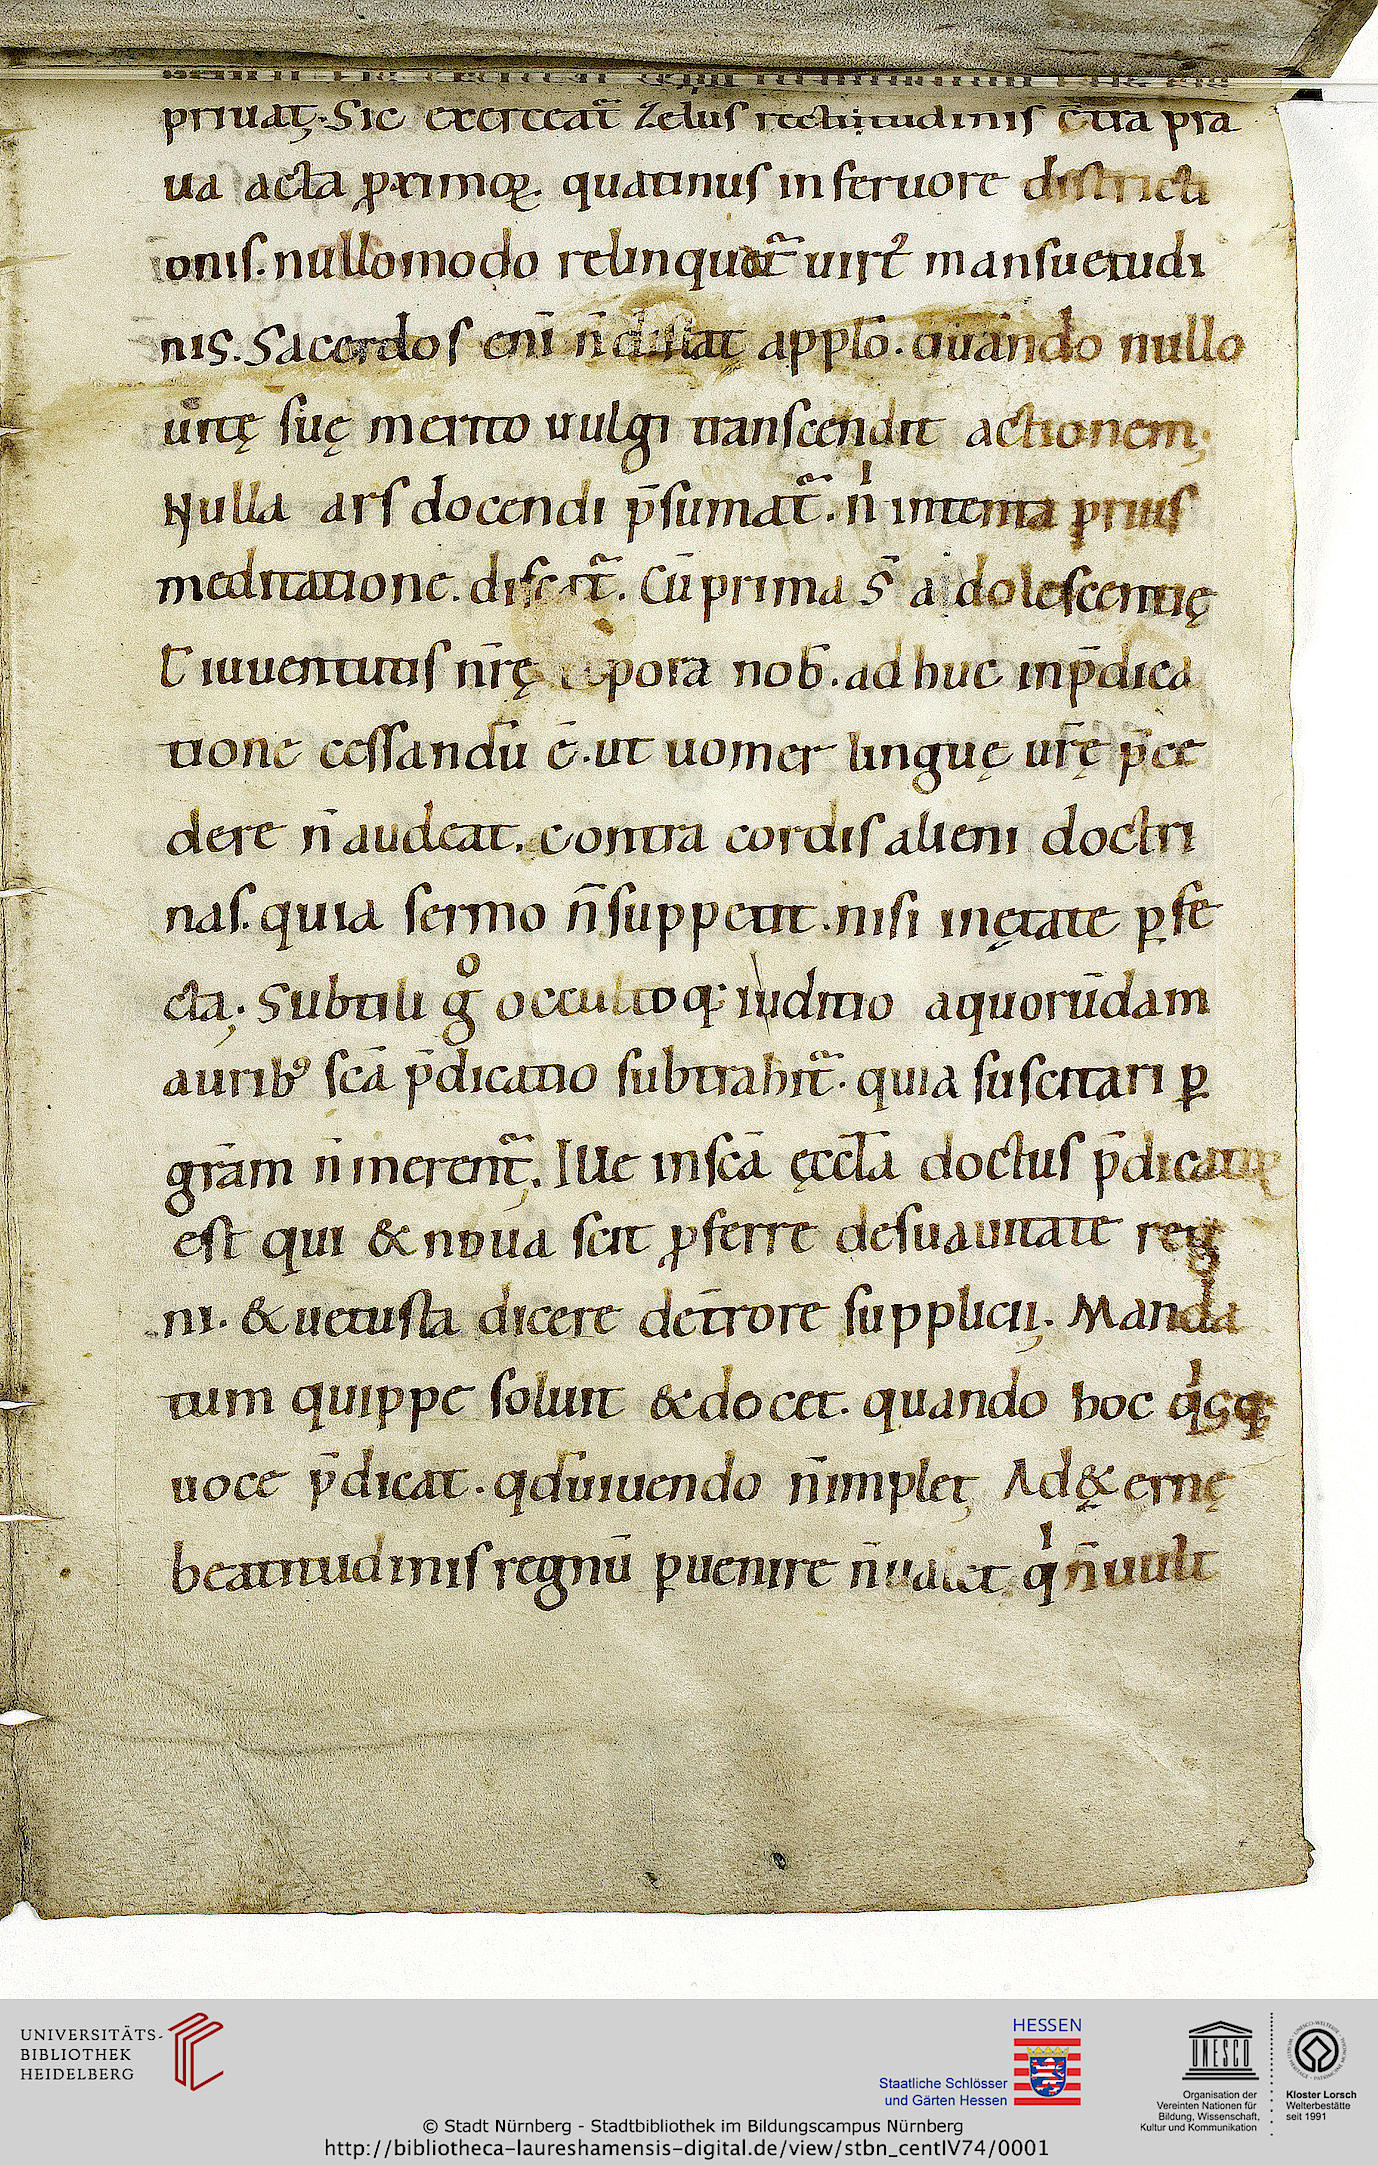 priuat; Sic exerceat᷑ zelus rectitudinis c̄tra pra
ua acta ꝓximoꝝ. quatinus in feruore districti
onis. nullomodo relinquat᷑ uirt᷒ mansuetudi
nis. Sacerdos eni̅ n̅ appl̅o. quando nullo
uitę suę merito uulgi transcendit actionem;
Nulla ars docendi p̅sumat᷑. nͥ intenta prius
meditatione. discat᷑. Cu̅ prima s̅ adolescentię
iuuentutis nr̅ę pora nob̅. adhuc inp̅dica
tione cessandu̅ ē. ut uomer linguę ur̅ę p̅ce
dere n̅ audeat. contra cordis alieni doctri
nas. quia sermo n̅ suppetit. nisi inętate ꝑfe
cta; Subtili gͦ occultoq; iuditio aquoru̅dam
aurib᷒ sc̅a p̅dicatio subtrahit᷑. quia suscitari ꝑ
gra̅m n̅ merent᷑; Ille insc̅a ęccl̅a doctus p̅dicator
est qui & noua scit ꝓferre desuauitate reg
ni. & uetusta dicere det̅rore supplicii; Manda
tum quippe soluit & docet. quando hoc qͥsq;
uoce p̅dicat. qd̅ uiuendo n̅ implet; Ad &ernę
beatitudinis regnu̅ ꝑuenire n̅ ualet qͥ n̅ uult
UNIVERSITÄTS-
BIBLIOTHEK
HEIDELBERG
HESSEN
Staatliche Schlösser
und Gärten Hessen
UNESCO
Organisation der
Vereinten Nationen für
Bildung, Wissenschaft,
Kultur und Kommunikation
Kloster Lorsch
Welterbestätte
seit 1991
© Stadt Nürnberg - Stadtbibliothek im Bildungscampus Nürnberg
http://bibliotheca-laureshamensis-digital.de/view/stbn_centIV74/0001